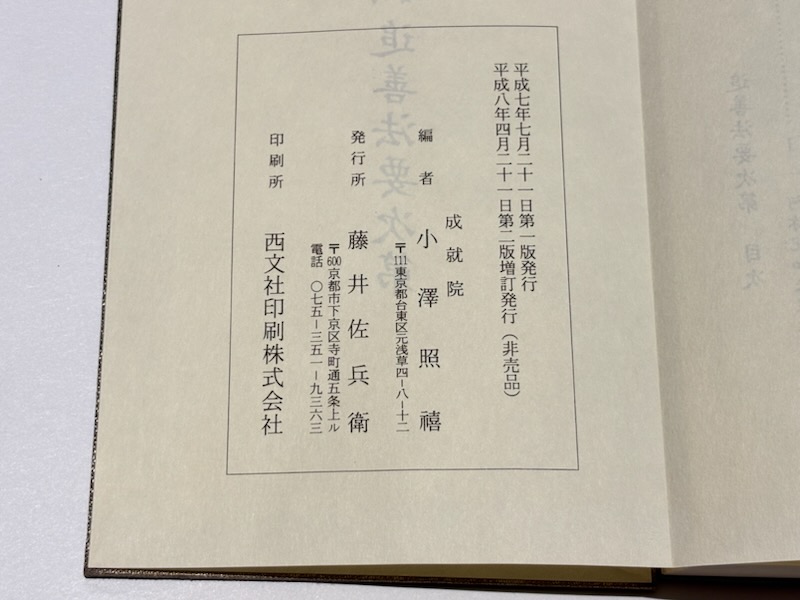 平成七年七月二十一日第一版発行
平成八年四月二十一日第二版増訂発行(非売品)
成就院
編者 小澤照禧
〒111東京都台東区元浅草四-八-十二
発行所 藤井佐兵衛
〒600京都市下京区寺町通五条上ル
電話 〇七五-三五一-九三六三
印刷所 西文社印刷株式会社
追善法要次第
追善法要次第 目次